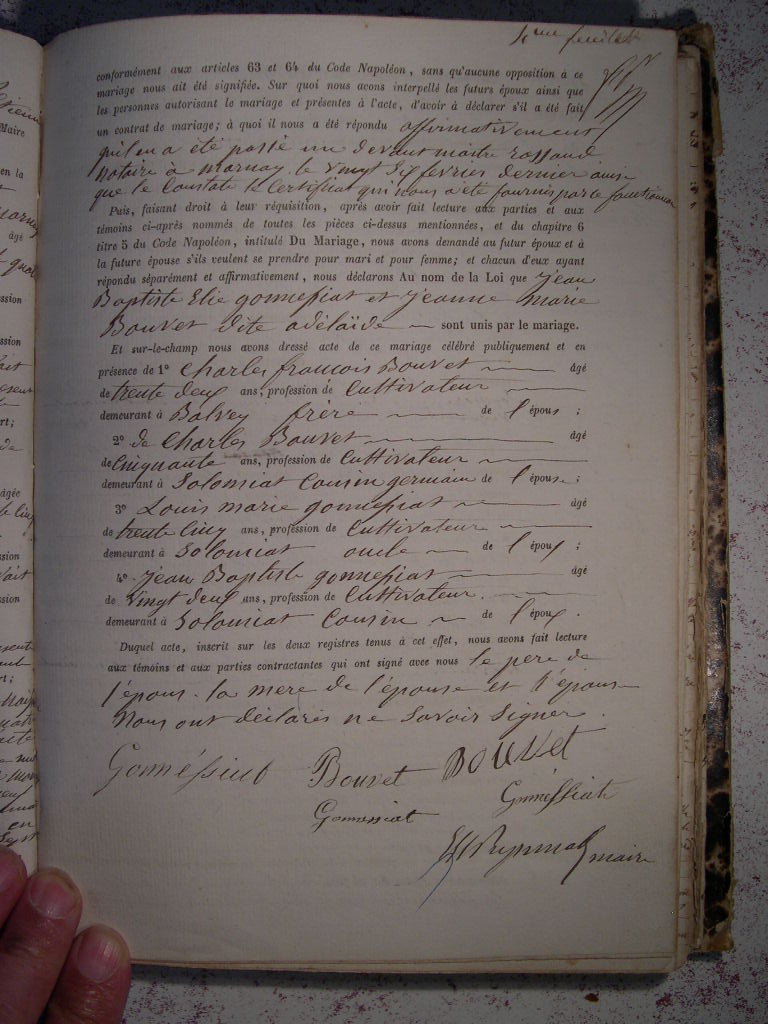 4me feuillet
conformément aux articles 63 et 64 du Code Napoléon, sans qu'aucune opposition à ce
mariage nous ait été signifiée. Sur quoi nous avons interpellé les futurs époux ainsi que
les personnes autorisant le mariage et présentes à l'acte, d'avoir à déclarer s'il a été fait
un contrat de mariage; à quoi il nous a été répondu affirmativement
qu'il en a été passé un devant maitre rossand
Notaire à marnay le vingt six fevrier dernier ainsi
que le Constate le Certificat qui nous a été fournis par ce fonctionnaire
Puis, faisant droit à leur réquisition, après avoir fait lecture aux parties et aux
témoins ci-après nommés de toutes les pièces ci-dessus mentionnées, et du chapitre 6
titre 5 du Code Napoléon, intitulé Du Mariage, nous avons demandé au futur époux et à
la future épouse s'ils veulent se prendre pour mari et pour femme; et chacun d'eux ayant
répondu séparément et affirmaticement, nous déclarons Au nom de la Loi que Jean
Baptiste Elie gonnessiat et jeanne marie
Bouvet dite adélaïde — sont unis par le mariage.
Et sur-le-champ nous avons dressé acte de ce mariage célébré publiquement et en
présence de 1° Charles francois Bouvet — âgé
de trente deux ans, profession de Cultivateur —
demeurant à Bolozy frère — de l'épous ;
2° de Charles Bouvet — âgé
de Cinquante ans, profession de Cultivateur —
demeurant à Solomiat Cousin germain de l'épouse ;
3° Louis marie gonnessiat — âgé
de trente Cinq ans, profession de Cultivateur —
demeurant à Solomiat oncle — de l'époux ;
4° jean Baptiste gonnessiat — âgé
de vingt deux ans, profession de Cultivateur. —
demeurant à Solomiat Cousin — de l'époux .
Duquel acte, inscrit sur les deux registres tenus à cet effet, nous avons fait lecture
aux témoins et aux parties contractantes qui ont signé avec nous le pere de
l'épous. la mere de l'épouse et l'épouse
Nous ont déclarés ne Savoir Signer .
Gonnéssiat Bouvet BOUVet
Gonnessiat Gonnéssiat
maire